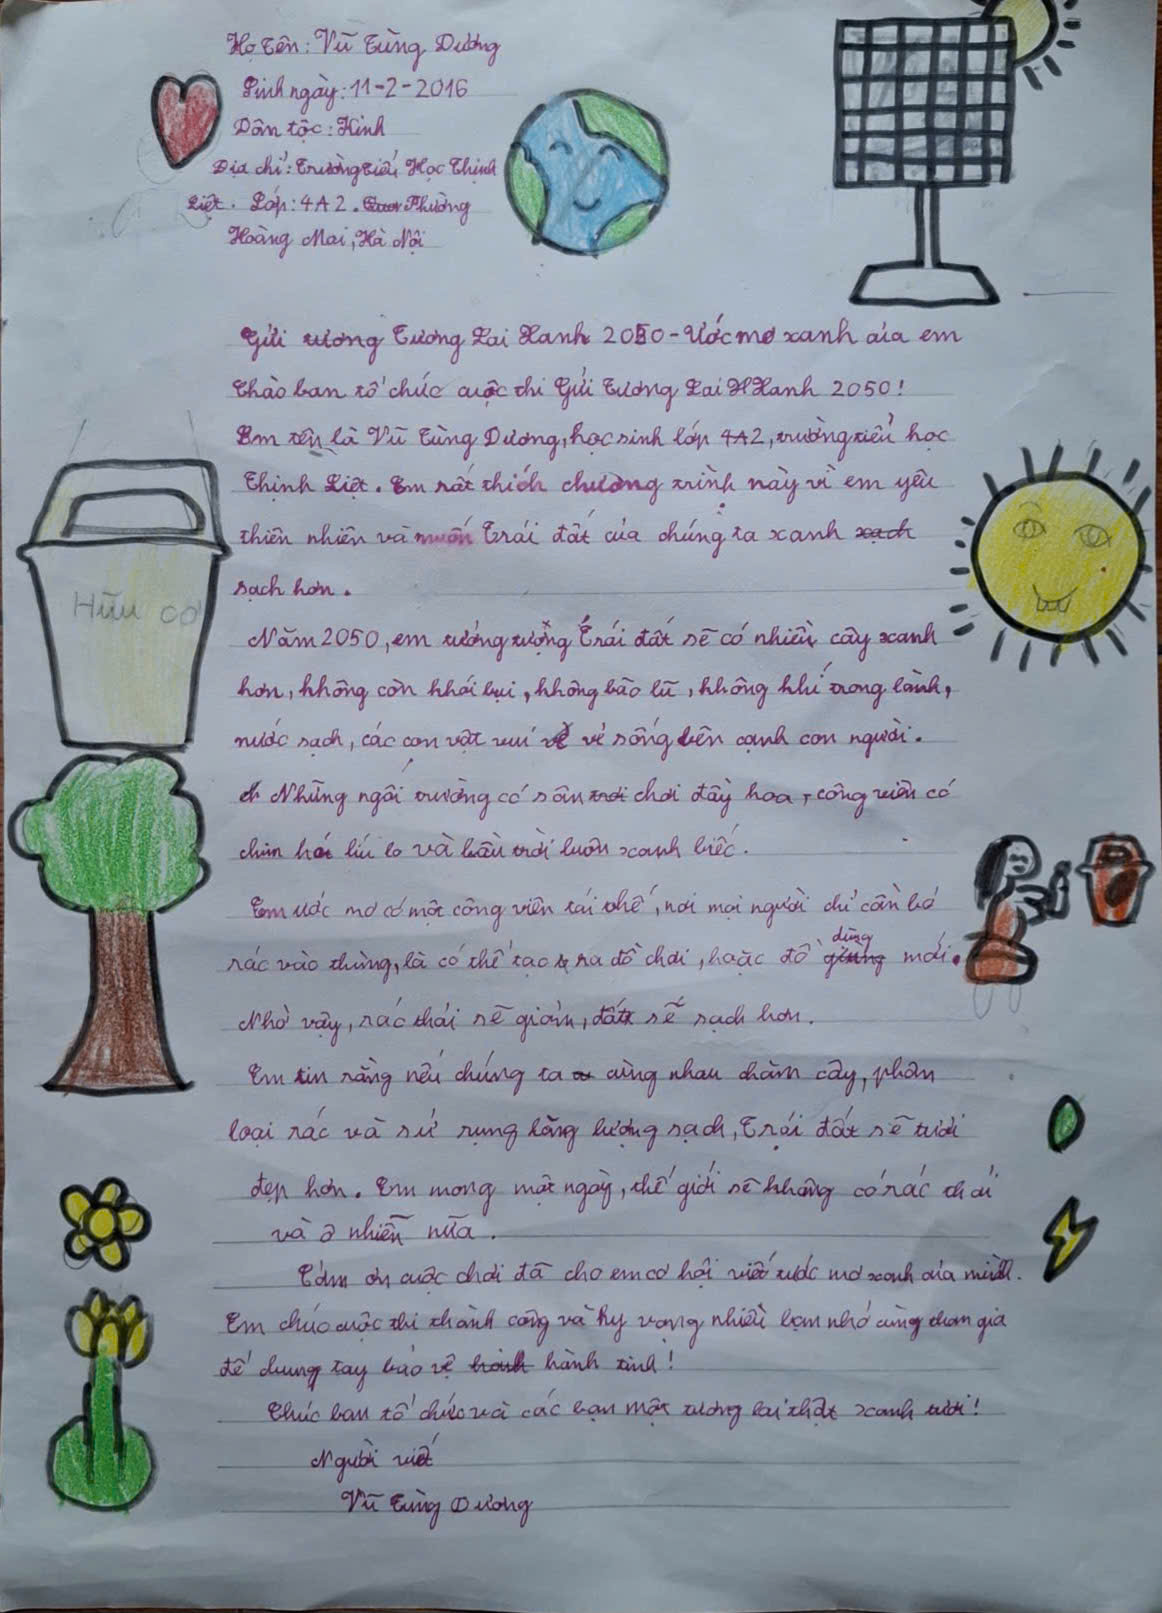 Họ tên: Vũ Tùng Dương
Sinh ngày: 11-2-2016
Dân tộc: Kinh
Địa chỉ: Trường tiểu Học Thịnh
Liệt. Lớp: 4A2. Phường
Hoàng Mai, Hà Nội
Gửi tương Tương Lai Xanh 2050 - Ước mơ xanh của em
Chào ban tổ chức cuộc thi Gửi Tương Lai Xanh 2050!
Em tên là Vũ Tùng Dương, học sinh lớp 4A2, trường tiểu học
Thịnh Liệt. Em rất thích chương trình này vì em yêu
thiên nhiên và muốn Trái đất của chúng ta xanh xạch
sạch hơn.
Hữu cơ
Năm 2050, em tưởng tượng Trái đất sẽ có nhiều cây xanh
hơn, không còn khói bụi, không bão lũ, không khí trong lành,
nước sạch, các con vật vui vẻ sống bên cạnh con người.
Những ngôi trường có sân chơi đầy hoa, công viên có
chim hót líu lo và bầu trời luôn xanh biếc.
Em ước mơ có một công viên tái chế, nơi mọi người chỉ cần bỏ
rác vào thùng, là có thể tạo ra đồ chơi, hoặc đồ dùng mới.
Nhờ vậy, rác thải sẽ giảm, đất sẽ sạch hơn.
Em tin rằng nếu chúng ta cùng nhau chăm cây, phân
loại rác và sử rụng lăng lượng sạch, Trái đất sẽ tươi
đẹp hơn. Em mong một ngày, thế giới sẽ không có rác thải
và ô nhiễn nữa.
Cảm ơn cuộc chơi đã cho em cơ hội viết ước mơ xanh của mình.
Em chúc cuộc thi thành công và hy vọng nhiều bạn nhỏ cùng tham gia
để chung tay bảo vệ hành tinh!
Chúc ban tổ chức và các bạn một tương lai thật xanh tươi!
Người viết
Vũ Tùng Dương